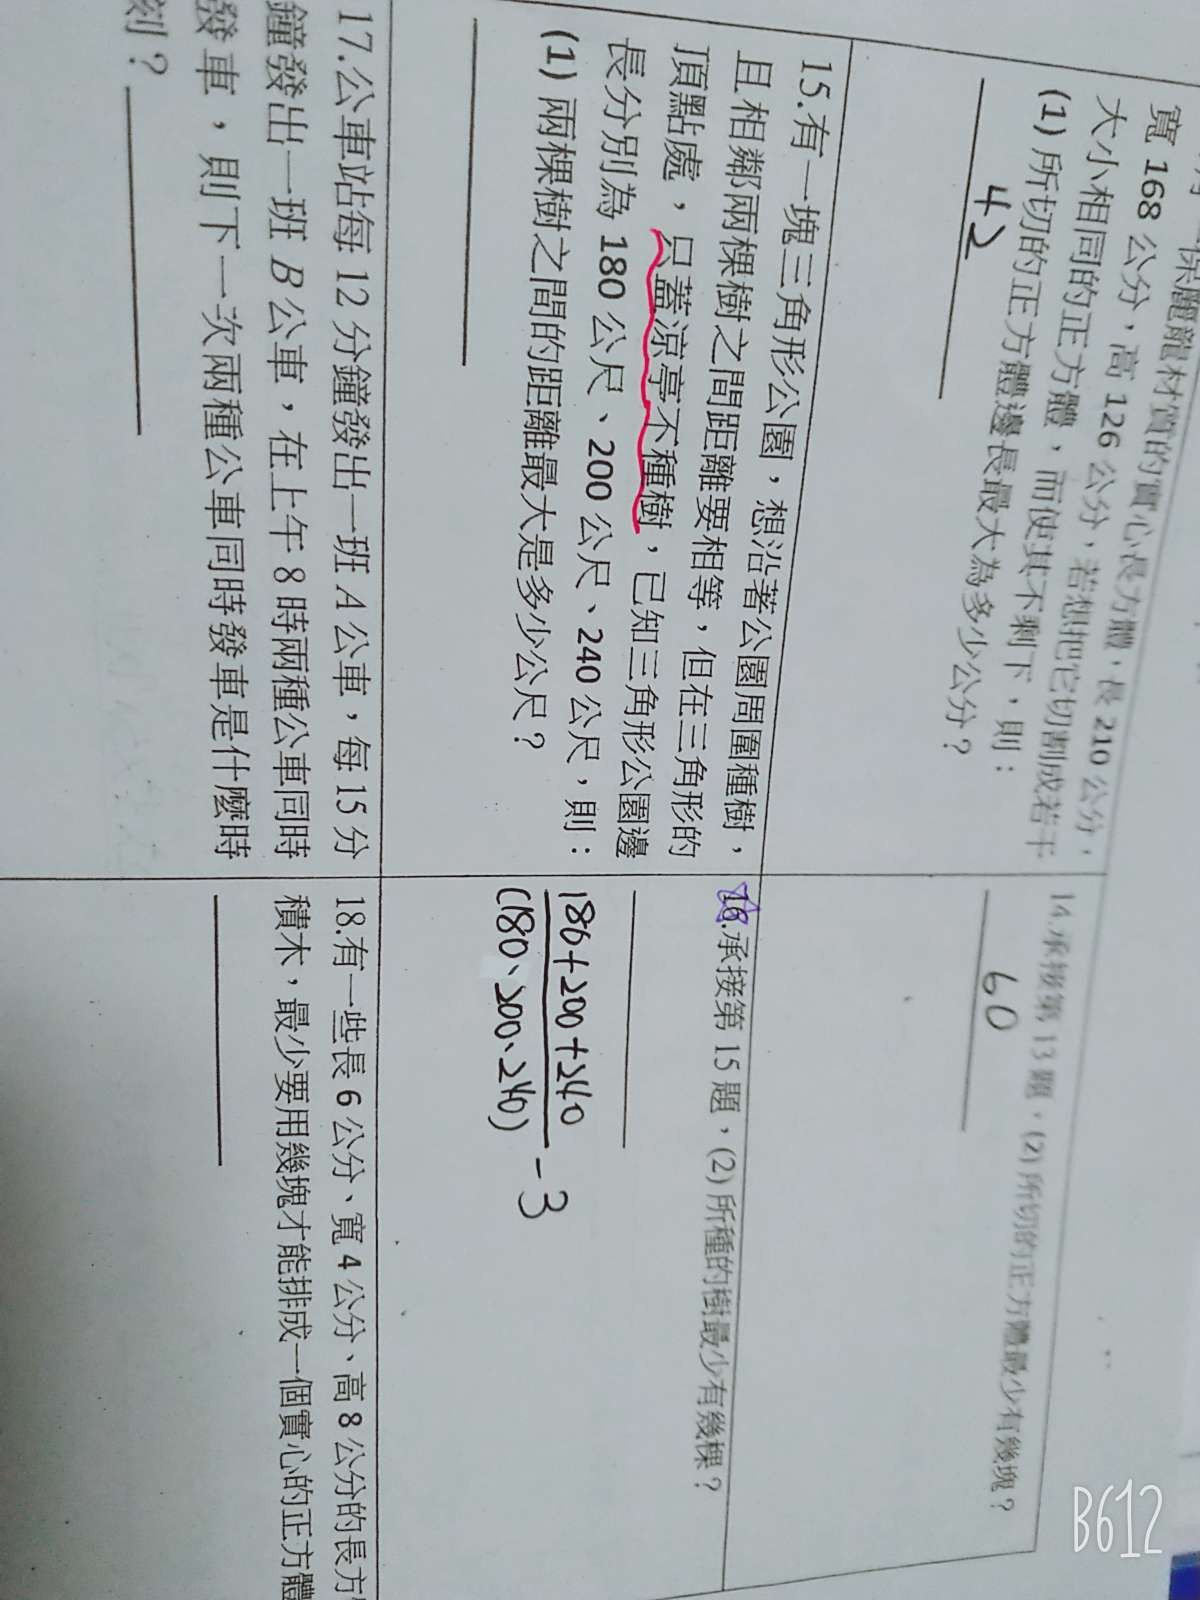 寬 168 公分，高 126 公分，若想把它切割成若干
大小相同的正方體，而使其不剩下，則：
(1) 所切的正方體邊長最大為多少公分？
42
14.承接第 13 題，(2) 所切的正方體最少有幾塊？
60
15.有一塊三角形公園，想沿著公園周圍種樹，
且相鄰兩棵樹之間距離要相等，但在三角形的
頂點處，只蓋涼亭不種樹，已知三角形公園邊
長分別為 180 公尺、200 公尺、240 公尺，則：
(1) 兩棵樹之間的距離最大是多少公尺？
16.承接第 15 題，(2) 所種的樹最少有幾棵？
180+200+240
(180、200、240)
-3
17.公車站每 12 分鐘發出一班 A 公車，每 15 分
鐘發出一班 B 公車，在上午 8 時兩種公車同時
發車，則下一次兩種公車同時發車是什麼時
刻？
18.有一些長 6 公分、寬 4 公分、高 8 公分的長方
積木，最少要用幾塊才能排成一個實心的正方體
B612